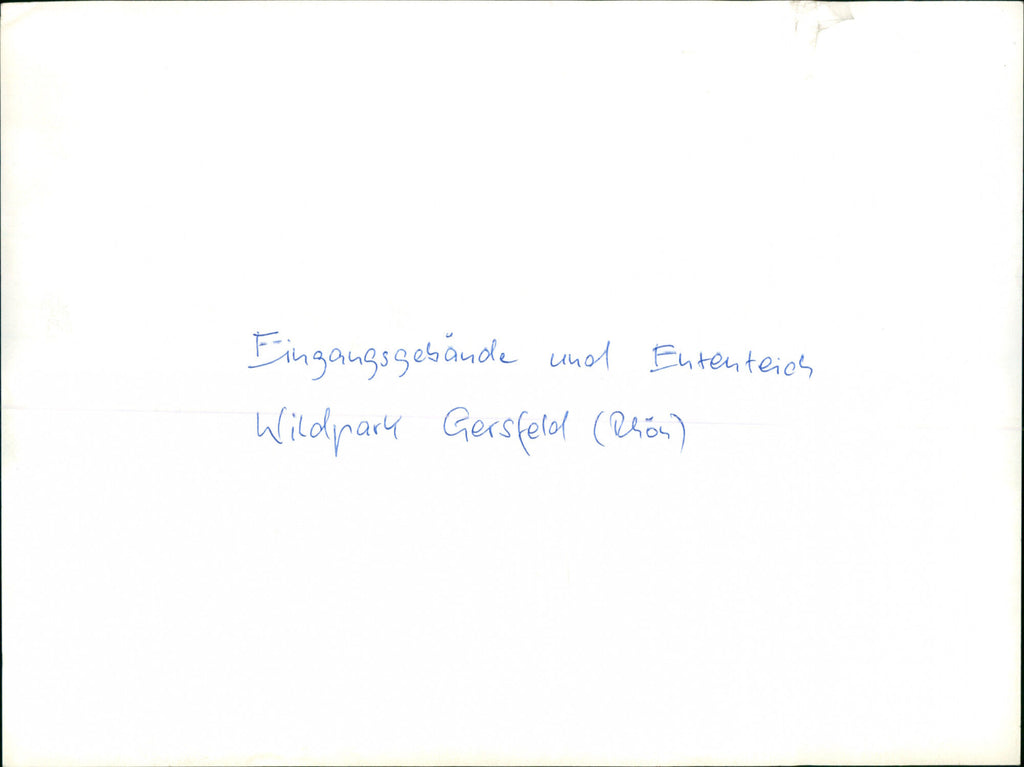 Eingangsgebäude und Ententeich
Wildpark Gersfeld (Rhön)